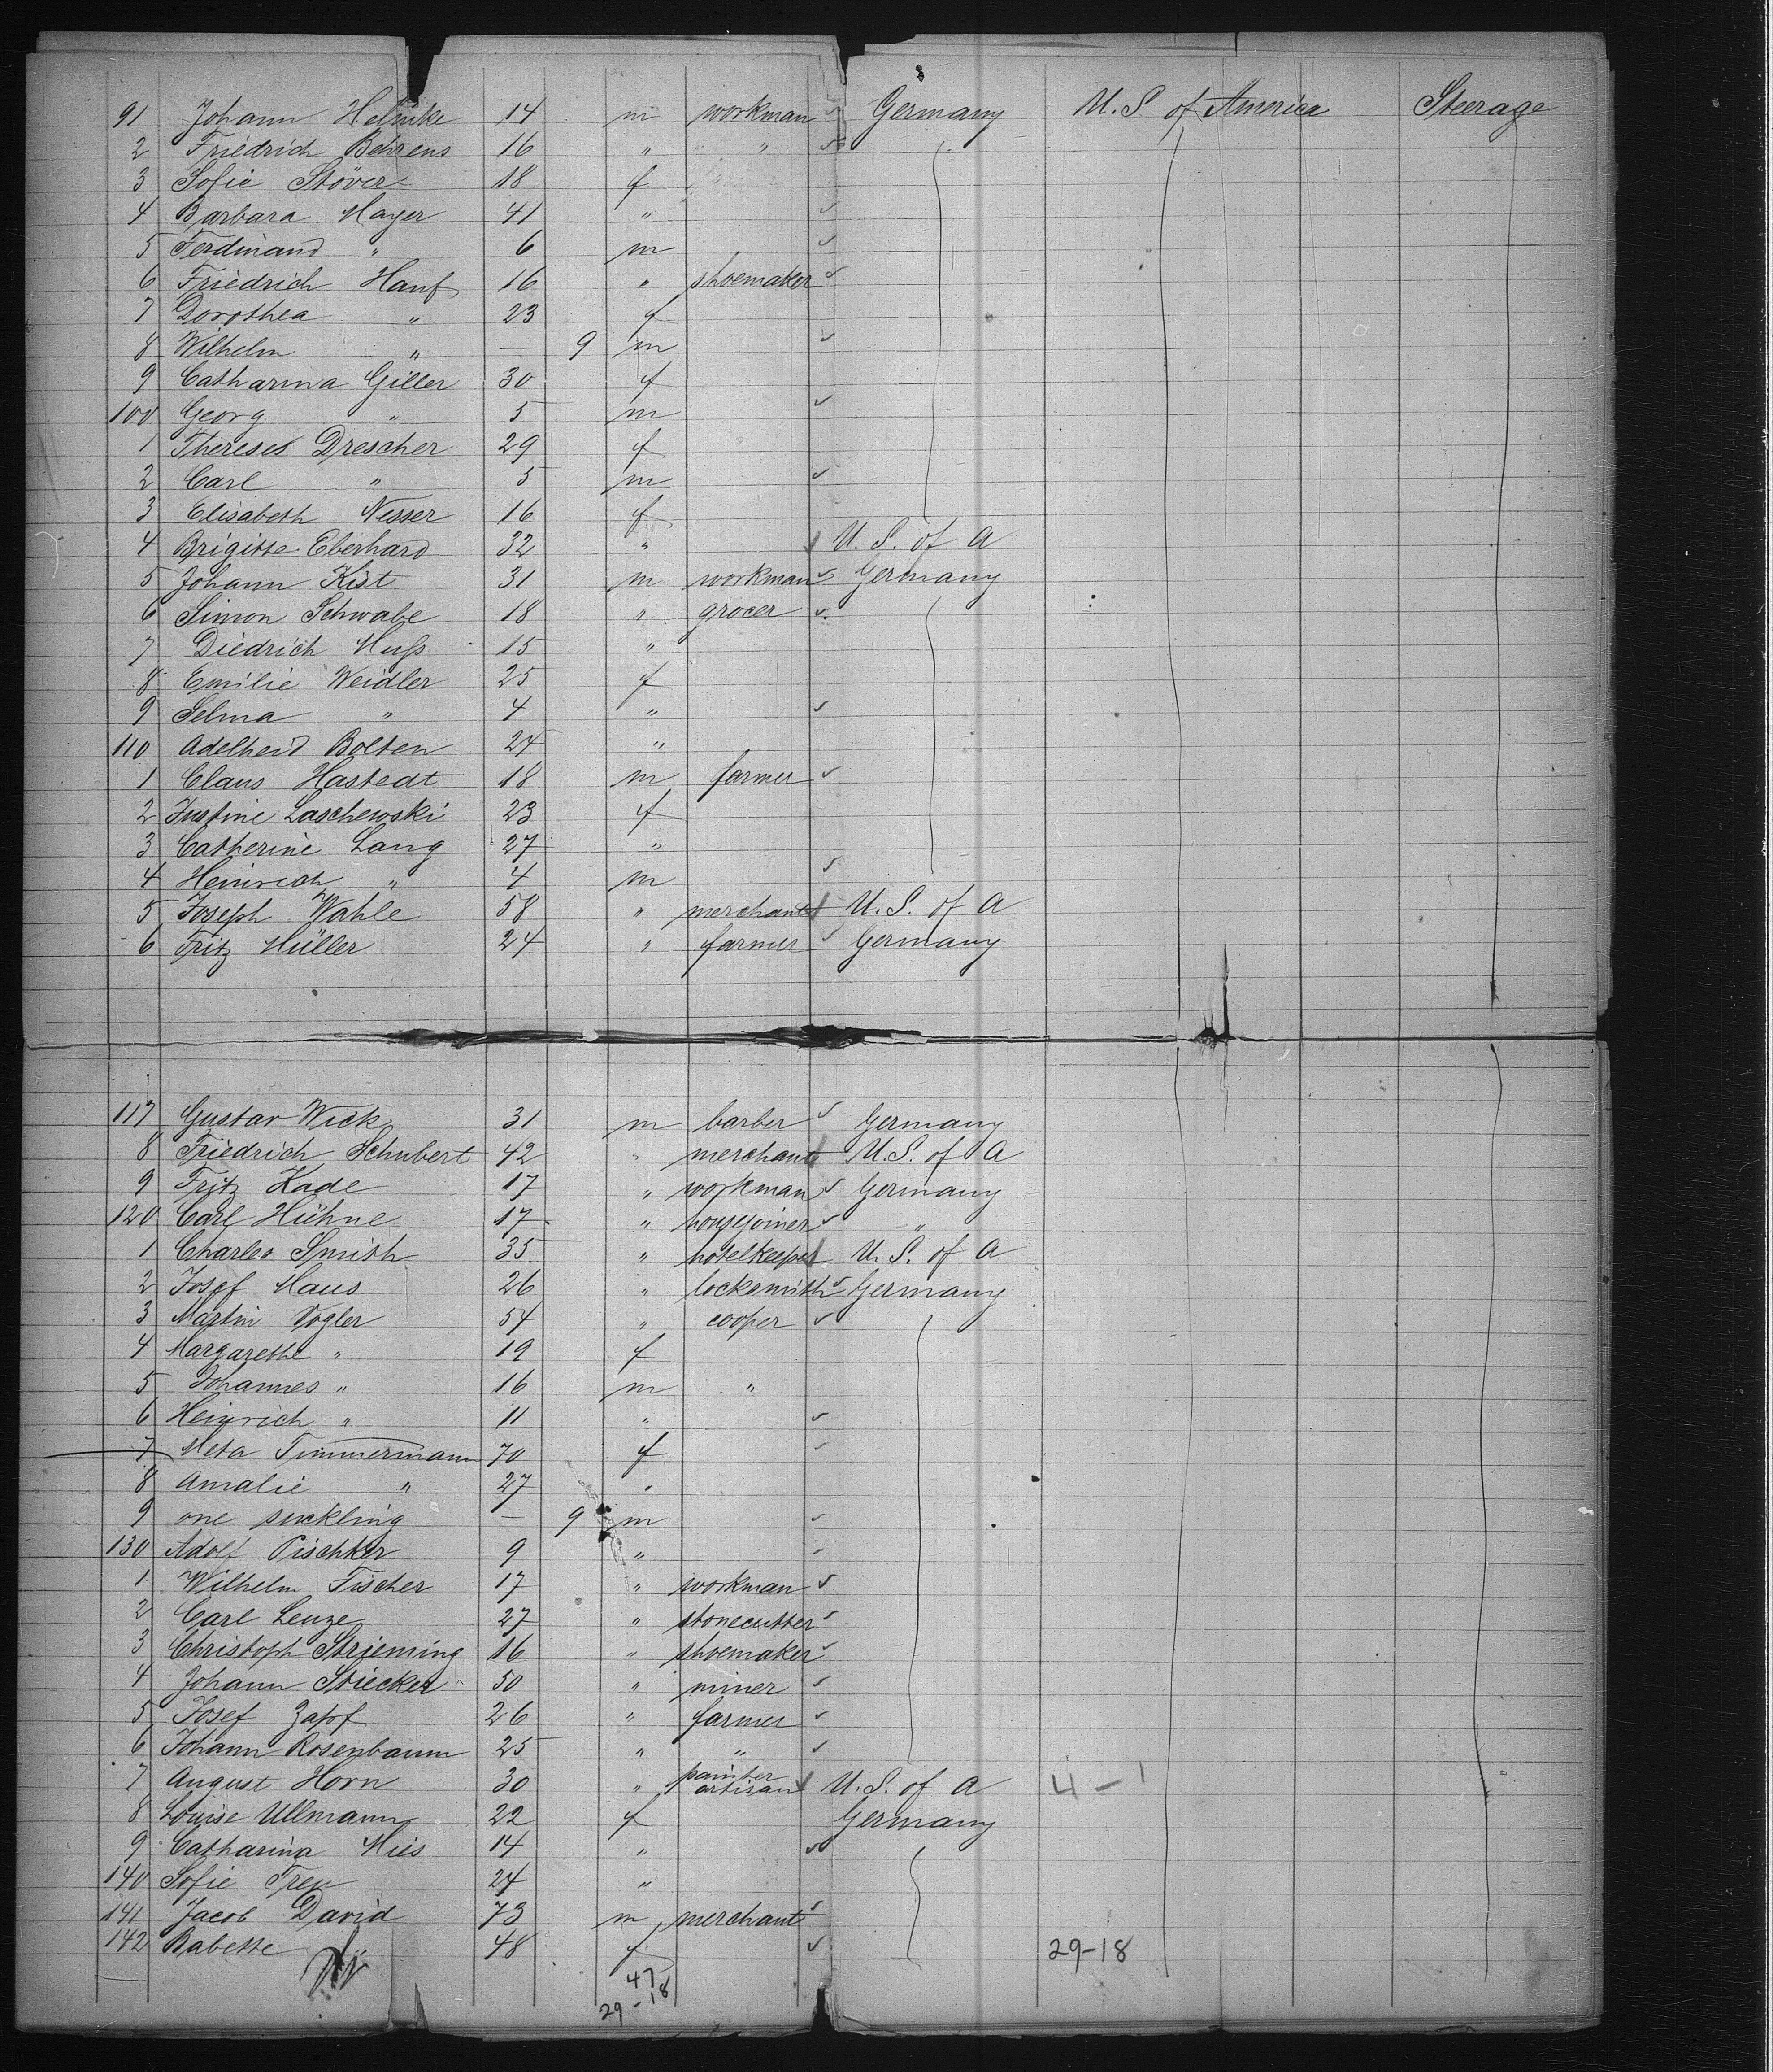 91 Johann Helmke 14 m workman Germany U.S of America Steerage
2 Friedrich Behrens 16 " "
3 Sofie Stöver 18 f
4 Barbara Mayer 41 "
5 Ferdinand " 6 m
6 Friedrich Hanf 16 " shoemaker
7 Dorothea " 23 f
8 Wilhelm " — 9 m
9 Catharina Giller 30 f
100 Georg " 5 m
1 Therese Drescher 29 f
2 Carl " 5 m
3 Elisabeth Nesser 16 f
4 Brigitte Eberhard 32 " U.S. of A
5 Johann Kist 31 m workman Germany
6 Simon Schwabe 18 " grocer
7 Diedrich Huß 15 "
8 Emilie Weidler 25 f
9 Selma " 4 "
110 Adelheid Bolten 24 "
1 Claus Hastedt 18 m farmer
2 Justine Laschewski 23 f
3 Catherine Lang 27 "
4 Heinrich " 4 m
5 Joseph Wahle 58 " merchant U.S. of A
6 Fritz Müller 24 " farmer Germany
117 Gustav Wick 31 m barber Germany
8 Friedrich Schubert 42 " merchant U.S. of A
9 Fritz Kade 17 " workman Germany
120 Carl Hühne 17 " housejoiner "
1 Charles Smith 35 " hotelkeeper U.S. of A
2 Josef Haus 26 " locksmith Germany
3 Martin Vogler 54 " cooper
4 Margarethe " 19 f
5 Johannes " 16 m "
6 Heinrich " 11 "
7 Meta Timmermann 70 f
8 Amalie " 27 "
9 one suckling — 9 m
130 Adolf 9 "
1 Wilhelm Fischer 17 " workman
2 Carl Lenze 27 " stonecutter
3 Christoph Strieming 16 " shoemaker
4 Johann Striecker 50 " miner
5 Josef Zapf 26 " farmer
6 Johann Rosenbaum 25 " "
7 August Horn 30 " painter artisan U.S. of A 4-1
8 Louise Ullmann 22 f Germany
9 Catharina Mies 14 "
140 Sofie 24 "
141 Jacob David 73 m merchant
142 Babette " 48 f 29-18
47
29-18